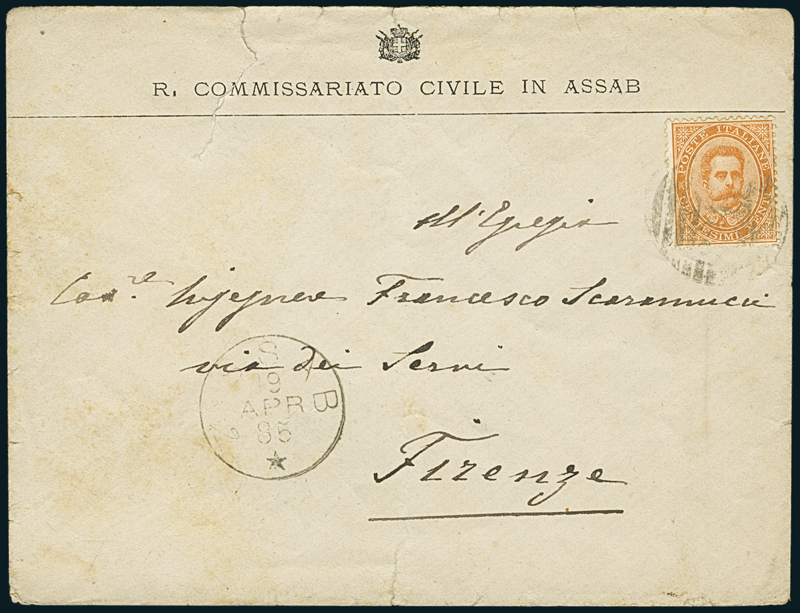 R. COMMISSARIATO CIVILE IN ASSAB
POSTE ITALIANE
CENTESIMI VENTI
All'Egregio
Cav.re Ingegnere Francesco Scaramucci
via dei Servi
Firenze
S B
19
APR
85